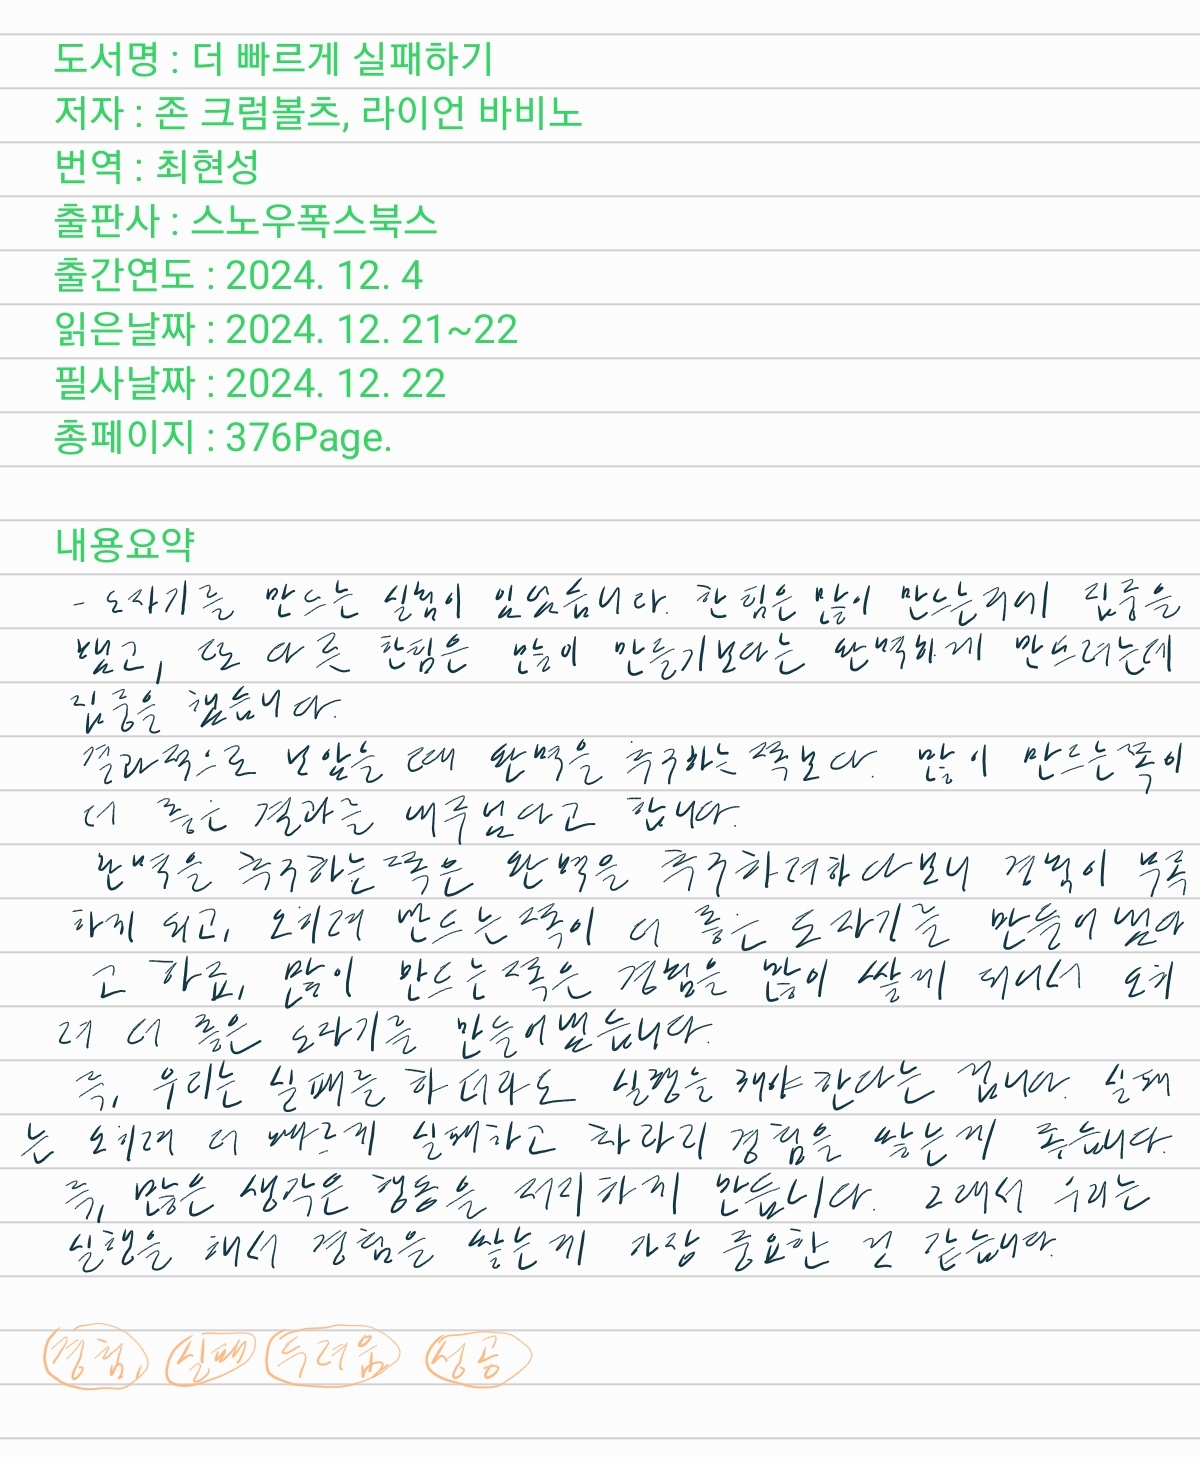 도서명 : 더 빠르게 실패하기
저자 : 존 크럼볼츠, 라이언 바비노
번역 : 최현성
출판사 : 스노우폭스북스
출간연도 : 2024. 12. 4
읽은날짜 : 2024. 12. 21~22
필사날짜 : 2024. 12. 22
총페이지 : 376Page.
내용요약
- 도자기를 만드는 실험이 있었습니다. 한 팀은 많이 만드는거에 집중을
했고, 또 다른 한팀은 많이 만들기보다는 완벽하게 만드려는데
집중을 했습니다.
결과적으로 보았을 때 완벽을 추구하는 쪽보다. 많이 만드는쪽이
더 좋은 결과를 내루었다고 합니다.
완벽을 추구하는쪽은 완벽을 추구하려하다보니 경험이 부족
하게 되고, 오히려 만드는쪽이 더 좋은 도자기를 만들어 냈다
고 하죠, 많이 만드는쪽은 경험을 많이 쌓게 되니서 오히
려 더 좋은 도자기를 만들어냈습니다.
즉, 우리는 실패를 하더라도 실행을 해야한다는 겁니다. 실패
는 오히려 더 빠르게 실패하고 차라리 경험을 쌓는게 좋습니다.
즉, 많은 생각은 행동을 저리하게 만듭니다. 그래서 우리는
실행을 해서 경험을 쌓는게 가장 중요한 건 같습니다.
경험, 실패 두려움 성공